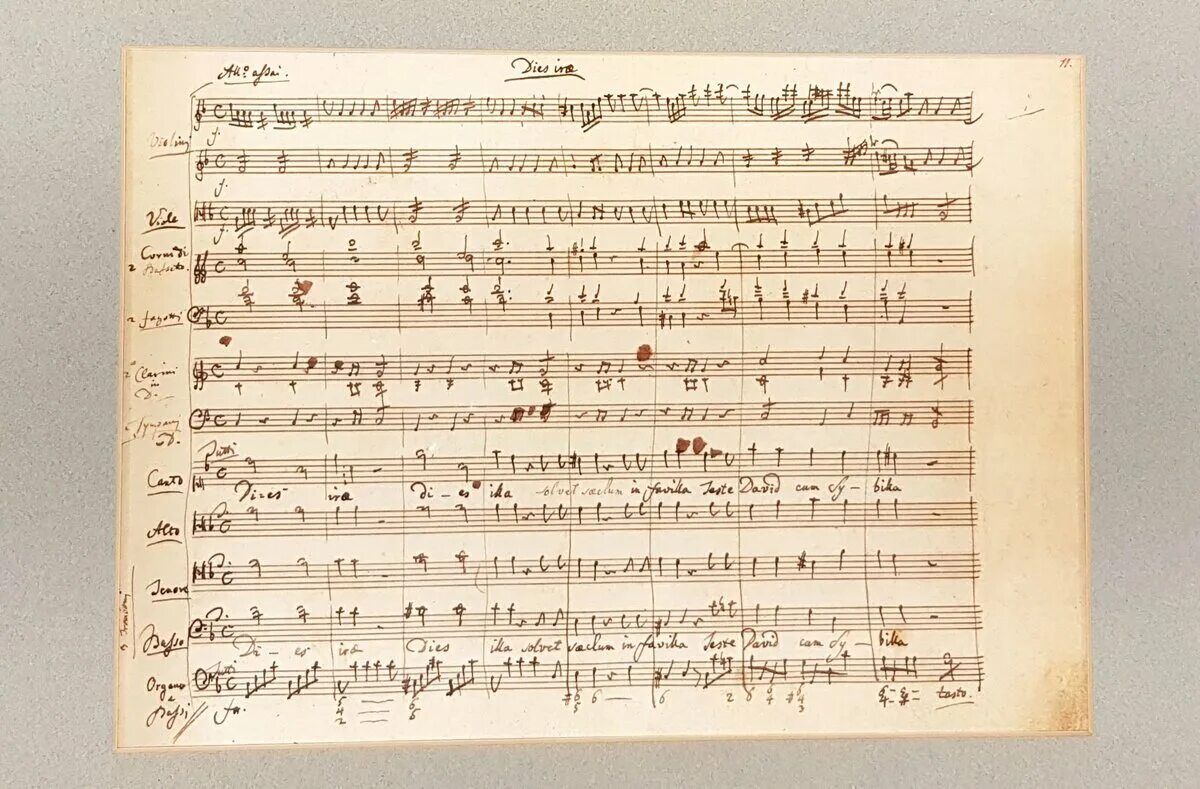 All:o aſsai.
Dies iræ
11.
Violini
f.
f.
Viole
f.
2 Corni di
Baſsetto.
2 fagotti
2 Clarini
in
D.
Tympani
D.
Tutti
Canto
Dies iræ Di-es illa solvet sæclum in favilla Teste David cum Sy-billa
Alto
Tenore
Baſso
Di-es iræ Dies illa solvet sæclum in favilla Teste David cum Sy-billa
Tutti
Organo
e
Baſsi
tasto.